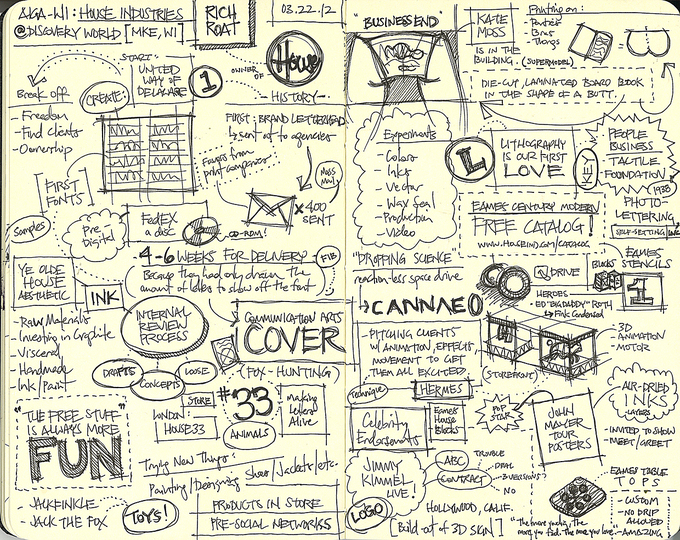 AIGA-WI: HOUSE INDUSTRIES
@DISCOVERY WORLD [MKE, WI]
RICH
ROAT
03.22.12
START:
UNITED
WAY OF
DELAWARE
1
OWNER
OF
House
HISTORY
Break off
CREATE:
- Freedom
- Find clients
- Ownership
[FIRST
FONTS]
FIRST: BRAND LETTERHEAD
sent off to agencies
Faxes from
print companies
Mass
Mail
x 400
SENT
Samples
Pre
Digital
FedEX
a disc
CD-ROM!
4-6 WEEKS FOR DELIVERY
FIB
Because they had only drawn the
amount of letters to show off the font
YE OLDE
HOUSE
AESTHETIC
INK
- Raw Materials
- Investing in Graphite
- Visceral
- Handmade
- Ink/Paint
INTERNAL
REVIEW
PROCESS
DRAFTS
CONCEPTS
LOOSE
COMMUNICATION ARTS
COVER
(FOX-HUNTING)
STORE
LONDON:
HOUSE 33
#33
ANIMALS
making
Letters
Alive
"THE FREE STUFF
IS ALWAYS MORE
FUN"
Trying New Things:
Painting/Designing
Shoes/Jackets/etc.
- JACKFINKLE
- JACK THE FOX
TOYS!
PRODUCTS IN STORE
PRE-SOCIAL NETWORKS
"BUSINESS END"
KATE
MOSS
IS IN THE
BUILDING.
(SUPERMODEL)
Printing on:
- Posters
- Bins
- Things
DIE-CUT, LAMINATED BOARD BOOK
IN THE SHAPE OF A BUTT.
Experiments
- Colors
- Inks
- Vector
- Wax Seal
- Production
- Video
L
LITHOGRAPHY
IS OUR FIRST
LOVE
KEY
PEOPLE
BUSINESS
TACTILE
FOUNDATION
1938
PHOTO-
LETTERING
SELF-SETTING INC
EAMES CENTURY MODERN
FREE CATALOG!
WWW.HOUSEIND.COM/CATALOG
"DROPPING SCIENCE
reaction-less space drive
CANNAE
Q DRIVE
BLOCKS
EAMES
STENCILS
1
HEROES
- ED "BIGDADDY" ROTH
Fink Condensed
- PITCHING CLIENTS
W/ ANIMATION, EFFECTS
MOVEMENT TO GET
THEM ALL EXCITED.
(STOREFRONT)
3D
- ANIMATION
- MOTOR
Technique
HERMES
Celebrity
Endorsements
Eames
House
Blocks
POP
STAR
JOHN
MAYER
TOUR
POSTERS
AIR-DRIED
INKS
LAYERS
- INVITED TO SHOW
- MEET/GREET
JIMMY
KIMMEL
LIVE!
ABC
CONTRACT
TROUBLE
DEAL
NO
LOGO
HOLLYWOOD, CALIF.
[Build out of 3D SIGN]
EAMES TABLE
TOPS
- CUSTOM
- NO DRIP
ALLOWED
- AMAZING
"The more you dig, The
more you find. The more you love."